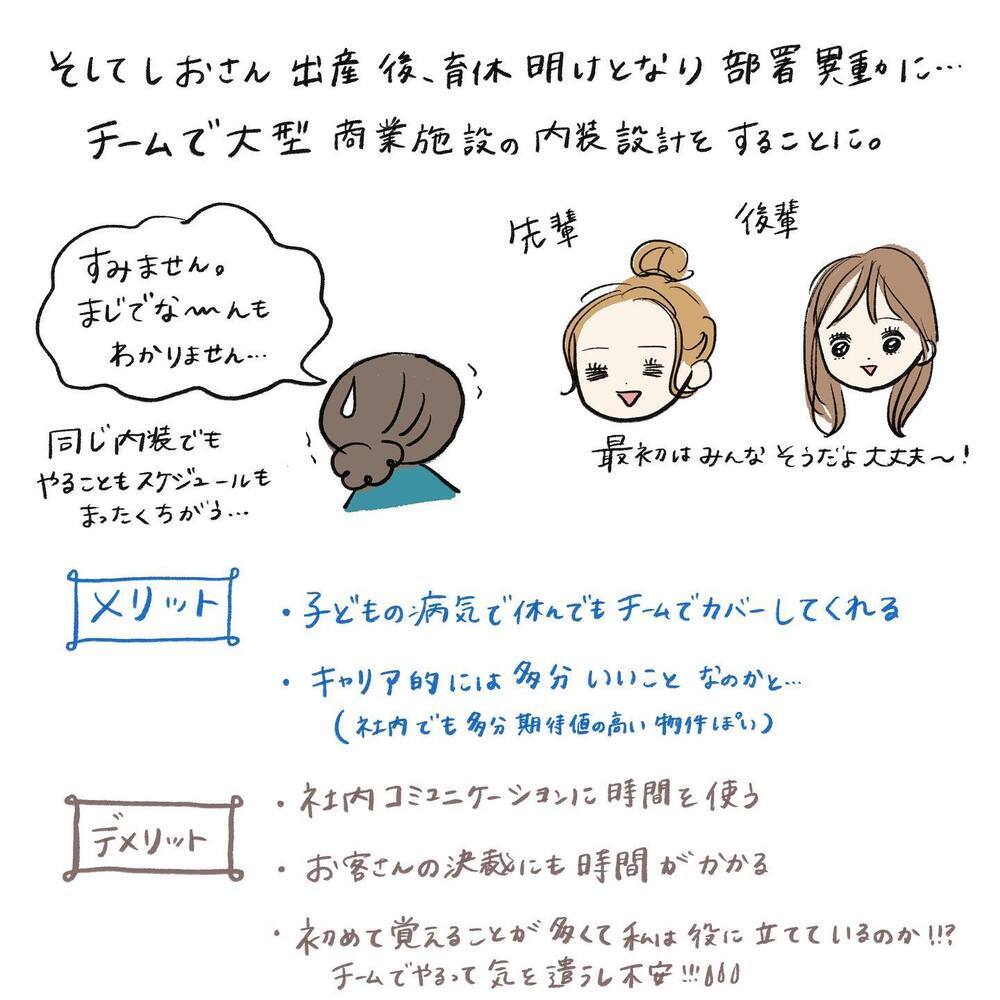 そしてしおさん 出産後、育休明けとなり 部署異動に…
チームで大型 商業施設の内装設計をすることに。
先輩
後輩
すみません。
まじでな〜んも
わかりません…
同じ内装でも
やることもスケジュールも
まったくちがう…
最初はみんなそうだよ大丈夫〜!
メリット
・子どもの病気で休んでもチームでカバーしてくれる
・キャリア的には多分いいことなのかと…
(社内でも多分期待値の高い物件ぽい)
デメリット
・社内コミュニケーションに時間を使う
・お客さんの決裁にも時間がかかる
・初めて覚えることが多くて私は役に立てているのか!!?
チームでやるって気を遣うし不安!!!